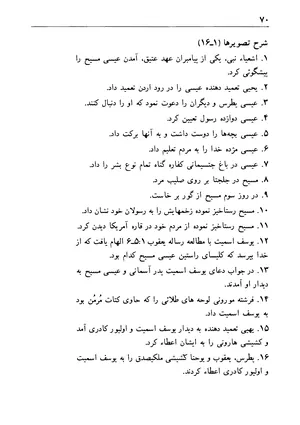 ۷۰
شرح تصویرها (۱ـ۱۶)
۱. اشعیاء نبی، یکی از پیامبران عهد عتیق، آمدن عیسی مسیح را
پیشگوئی کرد.
۲. یحیی تعمید دهنده عیسی را در رود اردن تعمید داد.
۳. عیسی پطرس و دیگران را دعوت نمود که او را دنبال کنند.
۴. عیسی دوازده رسول تعیین کرد.
۵. عیسی بچه‌ها را دوست داشت و به آنها برکت داد.
۶. عیسی مژده خدا را به مردم تعلیم داد.
۷. عیسی در باغ جتسیمانی کفاره گناه تمام نوع بشر را داد.
۸. مسیح در جلجتا بر روی صلیب مرد.
۹. در روز سوم مسیح از گور بر خاست.
۱۰. مسیح رستاخیز نموده زخمهایش را به رسولان خود نشان داد.
۱۱. مسیح رستاخیز نموده از مردم خود در قاره آمریکا دیدن کرد.
۱۲. یوسف اسمیت با مطالعه رساله یعقوب ۵:۱ـ۶ الهام یافت که از
خدا بپرسد که کلیسای راستین عیسی مسیح کدام بود.
۱۳. در جواب دعای یوسف اسمیت پدر آسمانی و عیسی مسیح به
دیدار او آمدند.
۱۴. فرشته مورونی لوحه های طلائی را که حاوی کتات مُرمُن بود
به یوسف اسمیت داد.
۱۵. یهیی تعمید دهنده به دیدار یوسف اسمیت و اولیور کادری آمد
و کشیشی هارونی را به ایشان اعطاء کرد.
۱۶. پطرس، یعقوب و یوحنا کشیشی ملکیصدق را به یوسف اسمیت
و اولیور کادری اعطاء کردند.